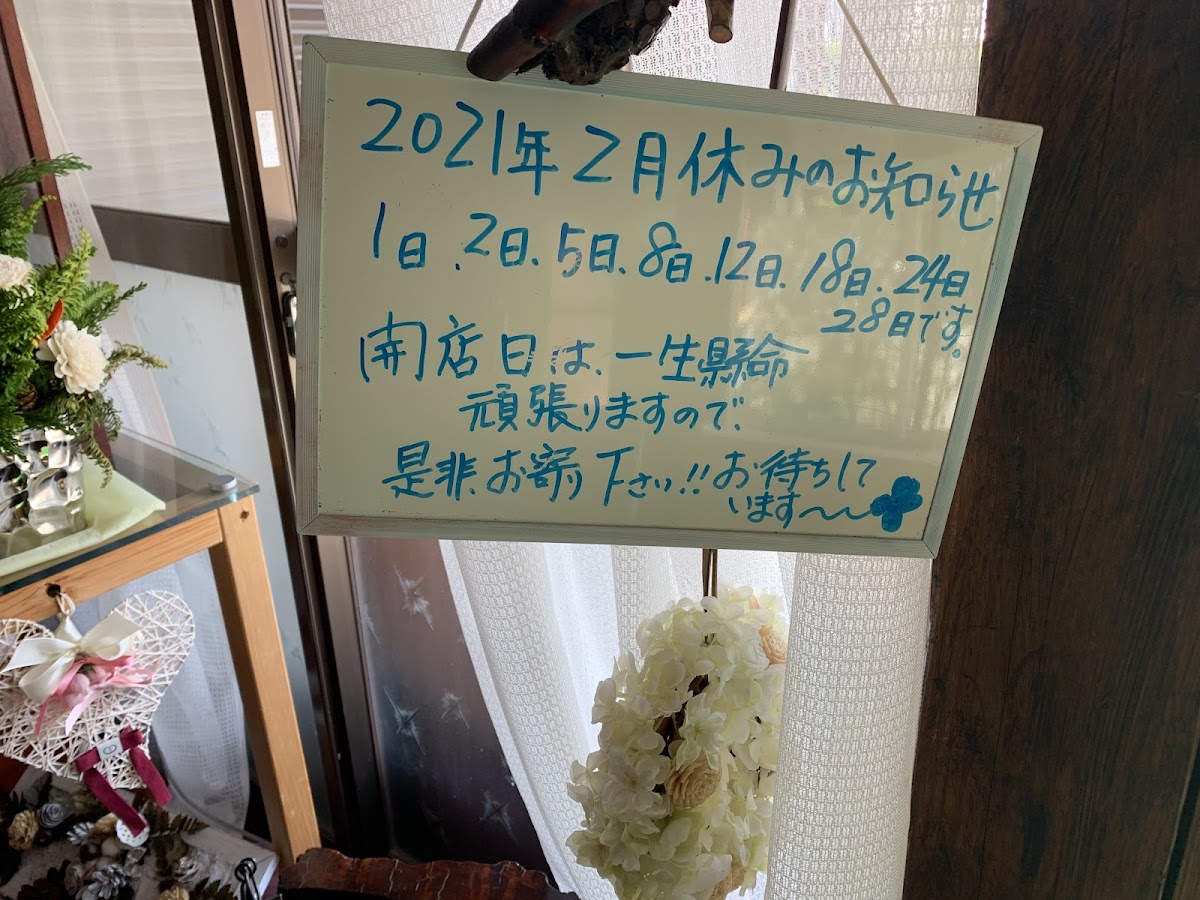 2021年2月休みのお知らせ
1日、2日、5日、8日、12日、18日、24日
28日です。
開店日は、一生懸命
頑張りますので、
是非、お寄り下さい!!お待ちして
います〜〜